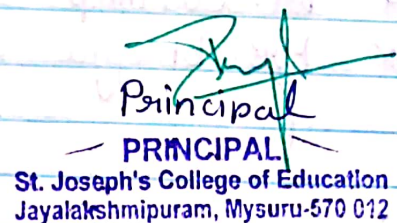 Principal
PRINCIPAL
St. Joseph's College of Education
Jayalakshmipuram, Mysuru-570 012